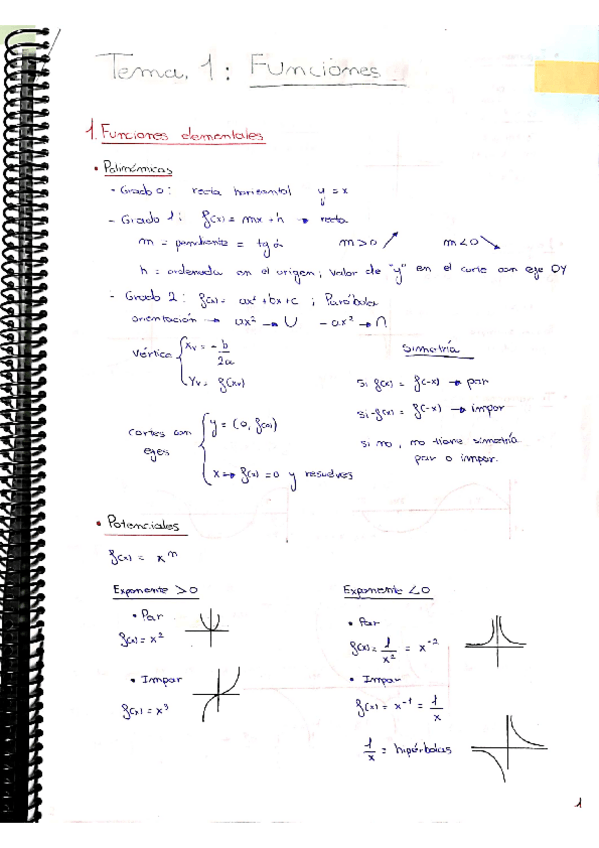 Tema. 1: Funciones
1. Funciones elementales
• Polinómicas
- Grado 0: recta horizontal y = x
- Grado 1: f(x) = mx + h → recta
m = pendiente = tg α m > 0 ↗ m < 0 ↘
h = ordenada en el origen; valor de "y" en el corte con eje OY
- Grado 2: f(x) = ax² + bx + c ; Parábola
orientación → ax² → ∪ - ax² → ∩
Vértice { Xv = -b/2a
Yv = f(xv)
Simetría
Si f(x) = f(-x) → par
Si -f(x) = f(-x) → impar
si no, no tiene simetría
par o impar.
cortes con ejes { y = (0, f(0))
x → f(x) = 0 y resuelves
• Potenciales
f(x) = xⁿ
Exponente > 0
• Par
f(x) = x²
• Impar
f(x) = x³
Exponente < 0
• Par
f(x) = 1/x² = x⁻²
• Impar
f(x) = x⁻¹ = 1/x
1/x = hipérbolas
1